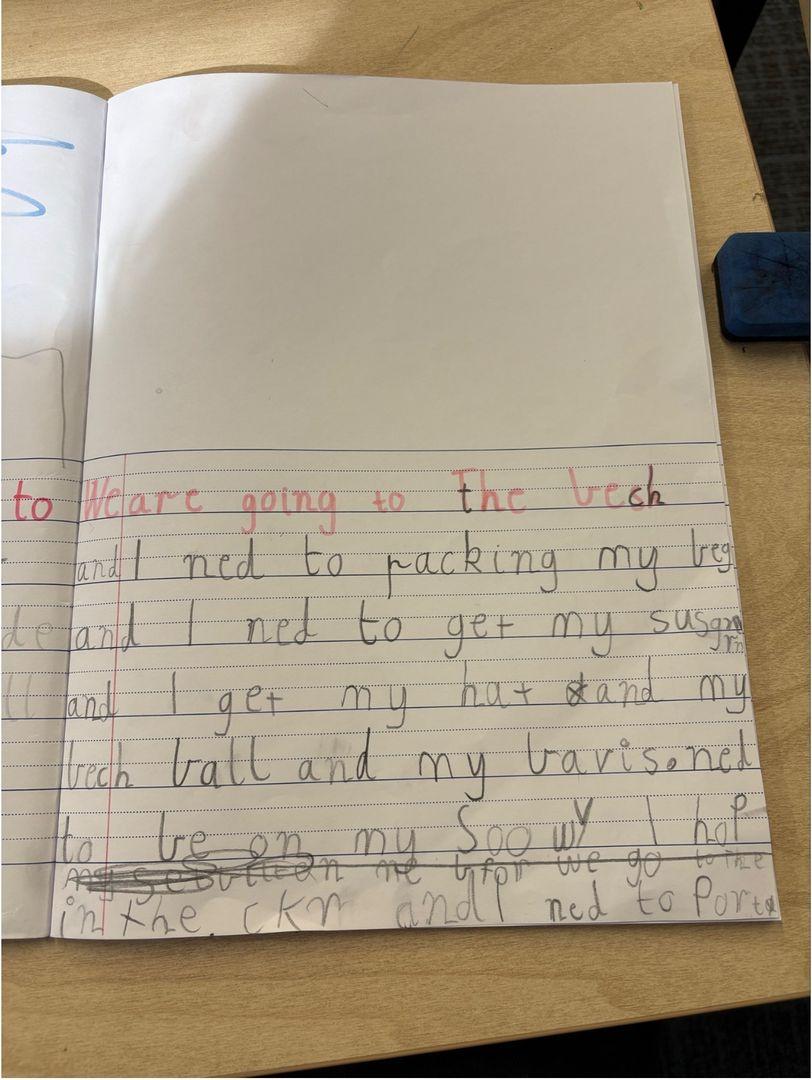 to We are going to The bech
and I ned to packing my beg
de and I ned to get my susgrm
ll and I get my hat and my
bech ball and my baris. ned
to be on my Soo wy I hop
me bfor we go to the
in the. ckr and I ned to Port